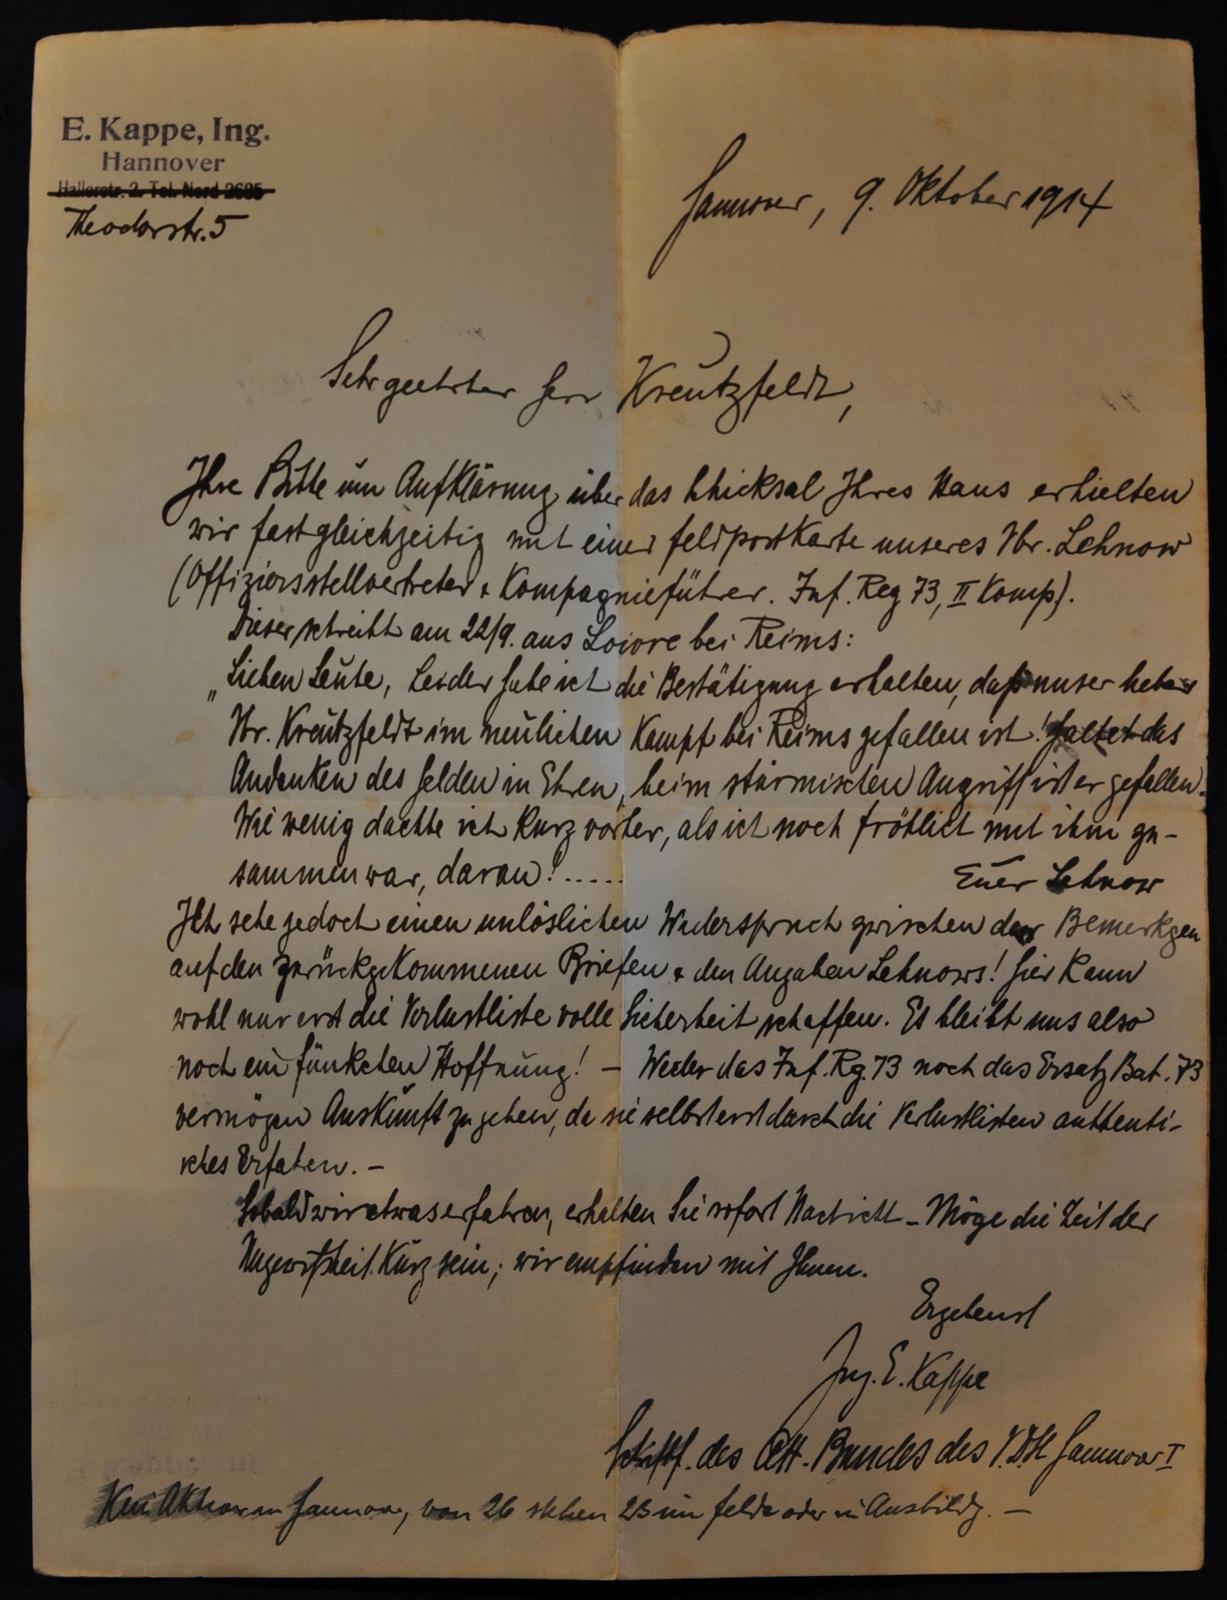 E. Kappe, Ing.
Hannover
Hallerstr. 2. Tel. Nord 2685
Theodorstr. 5
Hannover, 9. Oktober 1914
Sehr geehrter Herr Kreutzfeldt,
Ihre Bitte um Aufklärung über das Schicksal Ihres Hans erhielten
wir fast gleichzeitig mit einer Feldpostkarte unseres Vbr. Lehnow
(Offiziersstellvertreter & Kompagnieführer. Inf. Reg 73, II Komp).
Dieser schreibt am 22/9. aus Loivre bei Reims:
„Lieben Leute, Leider habe ich die Bestätigung erhalten, daß unser lieber
Vbr. Kreutzfeldt im neulichen Kampf bei Reims gefallen ist! Haltet das
Andenken des Helden in Ehren, beim stürmischen Angriff ist er gefallen.
Wie wenig dachte ich kurz vorher, als ich noch fröhlich mit ihm zu-
sammen war, daran! .....
Euer Lehnow
Ich sehe jedoch einen unlöslichen Widerspruch zwischen den Bemerkgen
auf den zurückgekommenen Briefen & den Angaben Lehnows! Hier kann
wohl nur erst die Verlustliste volle Sicherheit schaffen. Es bleibt uns also
noch ein Fünkchen Hoffnung! – Weder das Inf. Rg. 73 noch das Ersatz Bat. 73
vermögen Auskunft zu geben, da sie selbst erst durch die Verlustlisten authenti-
sches Erfahren. –
Sobald wir etwas erfahren, erhalten Sie sofort Nachricht – Möge die Zeit der
Ungewißheit kurz sein; wir empfinden mit Ihnen.
Ergebenst
Ing. E. Kappe
Schriftf. des Att. Bundes des V.D.St Hannover I
Kein Aktiver in Hannover, von 26 stehen 23 im Felde oder in Ausbildg. –